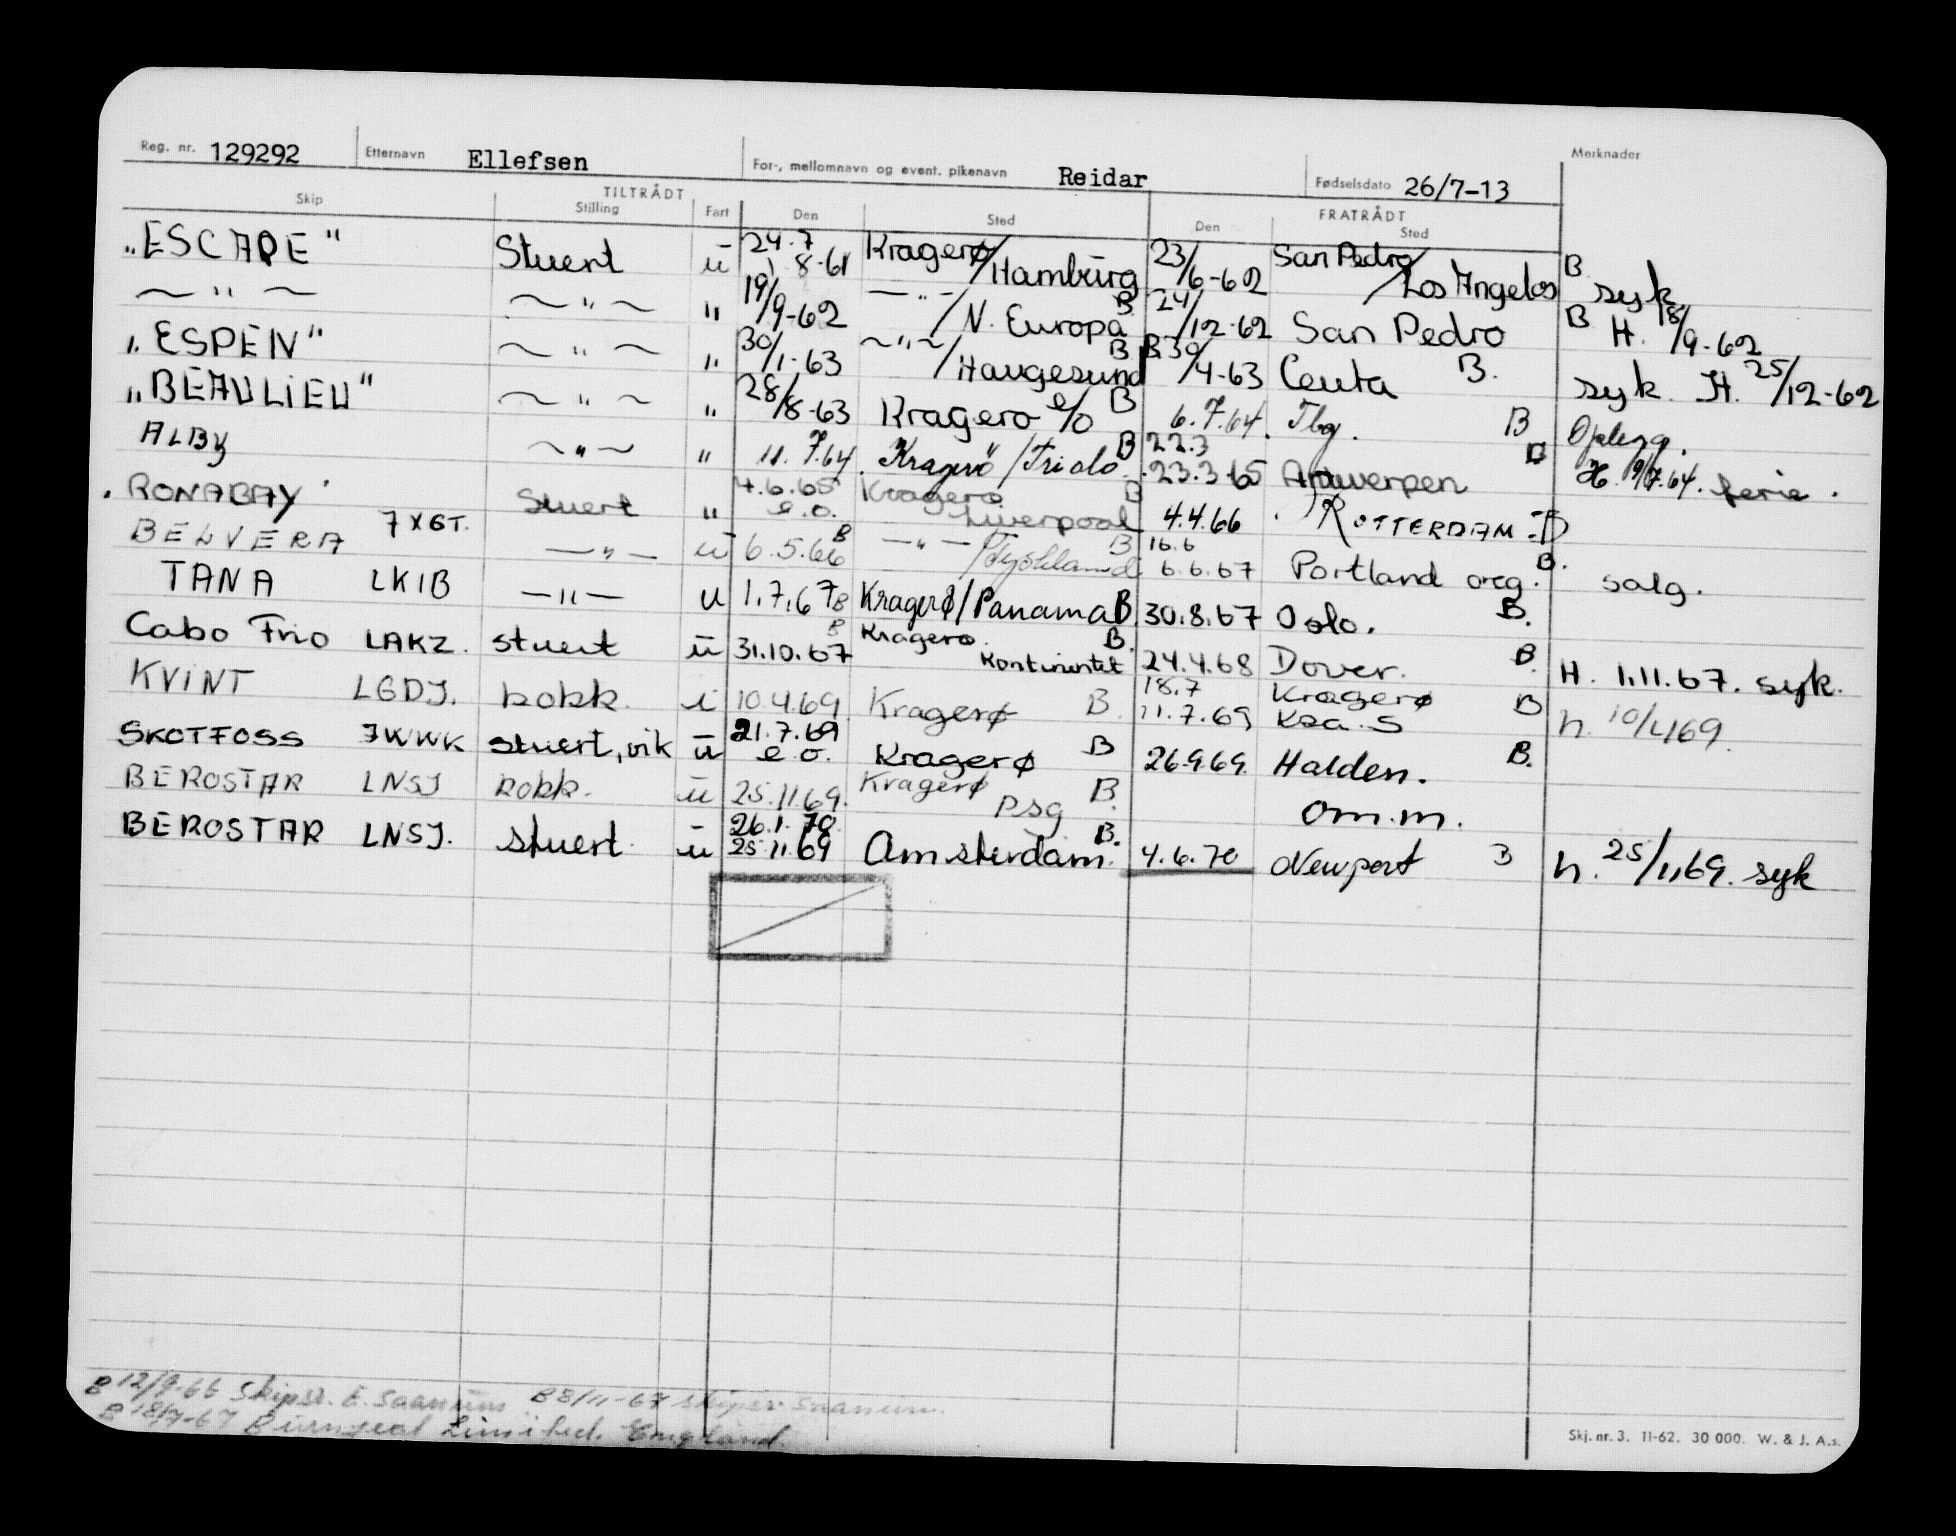 Reg. nr. 129292 Etternavn Ellefsen For-, mellomnavn og event. pikenavn Reidar Fødselsdato 26/7-13 Merknader
TILTRÅDT FRATRÅDT
Skip Stilling Fart Den Sted Den Sted
"ESCAPE" Stuert ū 24.7 1 8-61 Kragerø/Hamburg 23/6-62 San Pedro/Los Angelos B syk
~ " ~ ~ " ~ " 19/9-62 — " —/N. Europa B. 24/12-62 San Pedro B H. 18/9-62
"ESPEN" ~ " ~ " 30/1-63 ~ " ~/Haugesund B B 30/4-63 Ceuta B. syk. H. 25/12-62
"BEAULIEU" ~ " ~ " 28/8-63 Kragerø e/o B 6.7.64. Tbg. B Oplegg.
ALBY ~ " ~ " 11. 7.64. Kragerö/Tri olo B 22.3 23.3-65 Antwerpen B H. 9/7.64. ferie.
"RONABAY" Stuert " 4.6.65 e.o. Kragerø Liverpool B 4.4.66 ROTTERDAM B
BELVERA 7XGT. — " — ū 6.5.66 B — " —/Tyskland B 16.6 6.6.67 Portland oreg. B. salg.
TANA LKIB — " — u 1.7.67 B Kragerø/Panama B 30.8.67 Oslo. B.
Cabo Frio LAKZ. stuert ū 31.10.67 B Kragerø. Kontinentet B. 24.4.68 Dover. B. H. 1.11.67. syk.
KVINT LGDJ. kokk. i 10.4.69 Kragerø B 18.7 11.7.69 Kragerø Kra. S B h. 10/469.
SKOTFOSS JWWK stuert, vik ū 21.7.69 e.o. Kragerø B 26.9.69. Halden. B.
BEROSTAR LNSJ kokk. ū 25.11.69. Kragerø psg B. om.m.
BEROSTAR LNSJ. stuert ū 26.1.70 25.11.69 Amsterdam. B. 4.6.70 Newport B h. 25/1169. syk
B 12/9-66 Skipsr. E. Saanum B 8/11-67 skipsr. Saanum.
B 18/7-67 Limited. England.
Skj. nr. 3. 11-62. 30 000. W. & J. A.s.